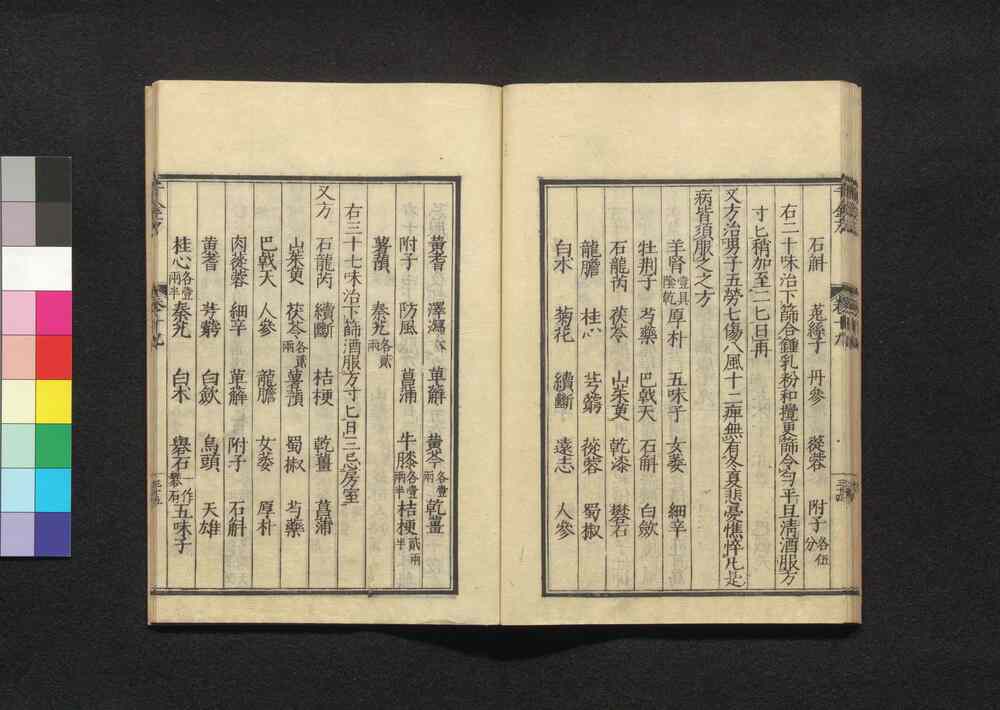 石斛 菟絲子 丹參 蓯蓉 附子各伍分
右二十味治下篩合鍾乳粉和攪更篩令勻平旦淸酒服方
寸匕稍加至二匕日再
又方治男子五勞七傷八風十二痺無有冬夏悲憂憔悴凡是
病皆須服之之方
羊腎壹具陰乾 厚朴 五味子 女萎 細辛
牡荆子 芍藥 巴戟天 石斛 白歛
石龍芮 茯苓 山茱萸 乾漆 礬石
龍膽 桂心 芎藭 蓯蓉 蜀椒
白朮 菊花 續斷 遠志 人參
黃耆 澤瀉 萆薢 黃芩各壹兩 乾薑
附子 防風 菖蒲 牛膝各壹兩半 桔梗貳兩半
薯蕷 秦艽各貳兩
右三十七味治下篩酒服方寸匕日三忌房室
又方 石龍芮 續斷 桔梗 乾薑 菖蒲
山茱萸 茯苓各貳兩 薯蕷 蜀椒 芍藥
巴戟天 人參 龍膽 女萎 厚朴
肉蓯蓉 細辛 萆薢 附子 石斛
黃耆 芎藭 白歛 烏頭 天雄
桂心各壹兩半 秦艽 白朮 礜石一作礬石 五味子